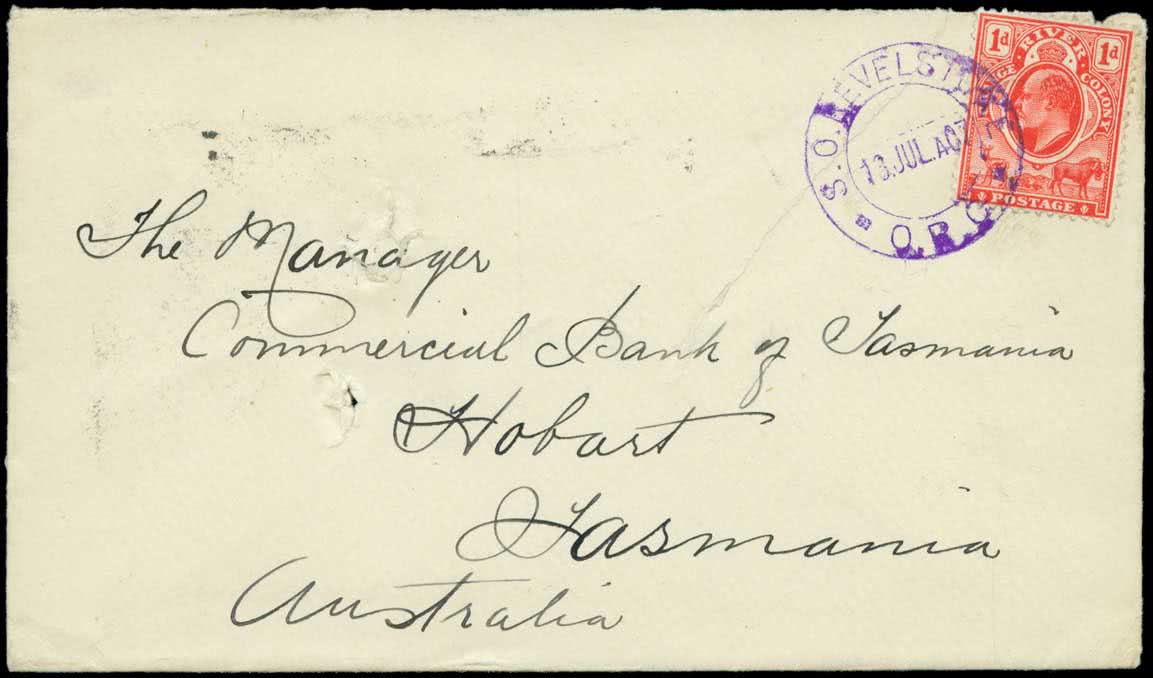 1d RIVER 1d
COLONY
POSTAGE
S.O.
13.JUL.A07
O.R.C.
The Manager
Commercial Bank of Tasmania
Hobart
Tasmania
Australia